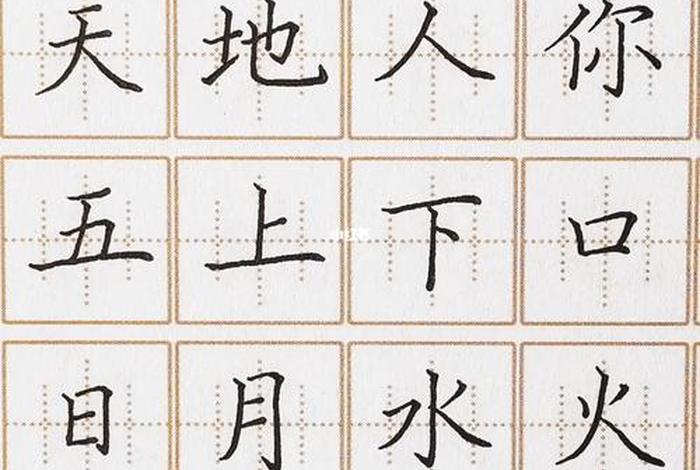 天地人你
五上下口
日月水火